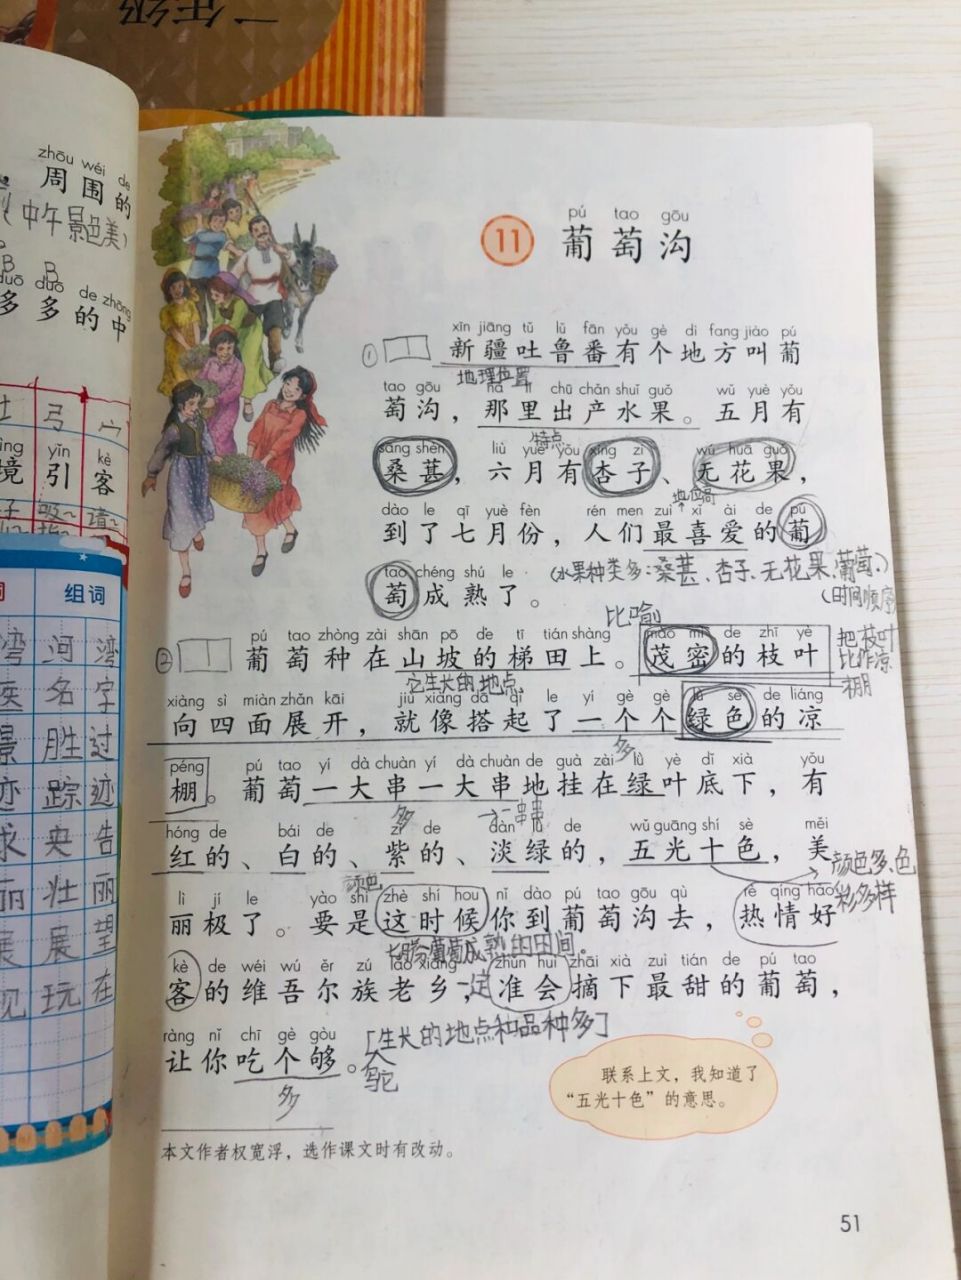 二年级
zhōu wéi de
周围的
(中午景色美)
duō duō de zhōng
多多的中
弓 宀
yǐn kè
境 引 客
组词
湾 河湾
名字
景 胜过
迹 踪迹
求 央告
丽 壮丽
展 展望
现 玩在
pú tao gōu
11 葡萄沟
xīn jiāng tǔ lǔ fān yǒu gè dì fang jiào pú
① 新疆吐鲁番有个地方叫葡
地理位置
tao gōu nà lǐ chū chǎn shuǐ guǒ wǔ yuè yǒu
萄沟，那里出产水果。五月有
特点
sāng shèn liù yuè yǒu xìng zi wú huā guǒ
桑葚，六月有杏子、无花果，
地位高
dào le qī yuè fèn rén men zuì xǐ ài de pú
到了七月份，人们最喜爱的葡
tao chéng shú le
萄成熟了。
(水果种类多：桑葚、杏子、无花果、葡萄。)
(时间顺序)
比喻
pú tao zhòng zài shān pō de tī tián shàng mào mì de zhī yè
② 葡萄种在山坡的梯田上。茂密的枝叶
把枝叶
比作凉
棚
它生长的地点
xiàng sì miàn zhǎn kāi jiù xiàng dā qǐ le yí gè gè lǜ sè de liáng
向四面展开，就像搭起了一个个绿色的凉
多
péng pú tao yí dà chuàn yí dà chuàn de guà zài lǜ yè dǐ xià yǒu
棚。葡萄一大串一大串地挂在绿叶底下，有
多
hóng de bái de zǐ de dàn lǜ de wǔ guāng shí sè měi
红的、白的、紫的、淡绿的，五光十色，美
颜色
颜色多、色
彩多样
lì jí le yào shi zhè shí hou nǐ dào pú tao gōu qù rè qíng hào
丽极了。要是这时候你到葡萄沟去，热情好
七月份葡萄成熟的时间。
kè de wéi wú ěr zú lǎo xiāng zhǔn huì zhāi xià zuì tián de pú tao
客的维吾尔族老乡，准会摘下最甜的葡萄，
一定
ràng nǐ chī gè gòu
让你吃个够。
[生长的地点和品种多]
多
联系上文，我知道了
“五光十色”的意思。
本文作者权宽浮，选作课文时有改动。
51